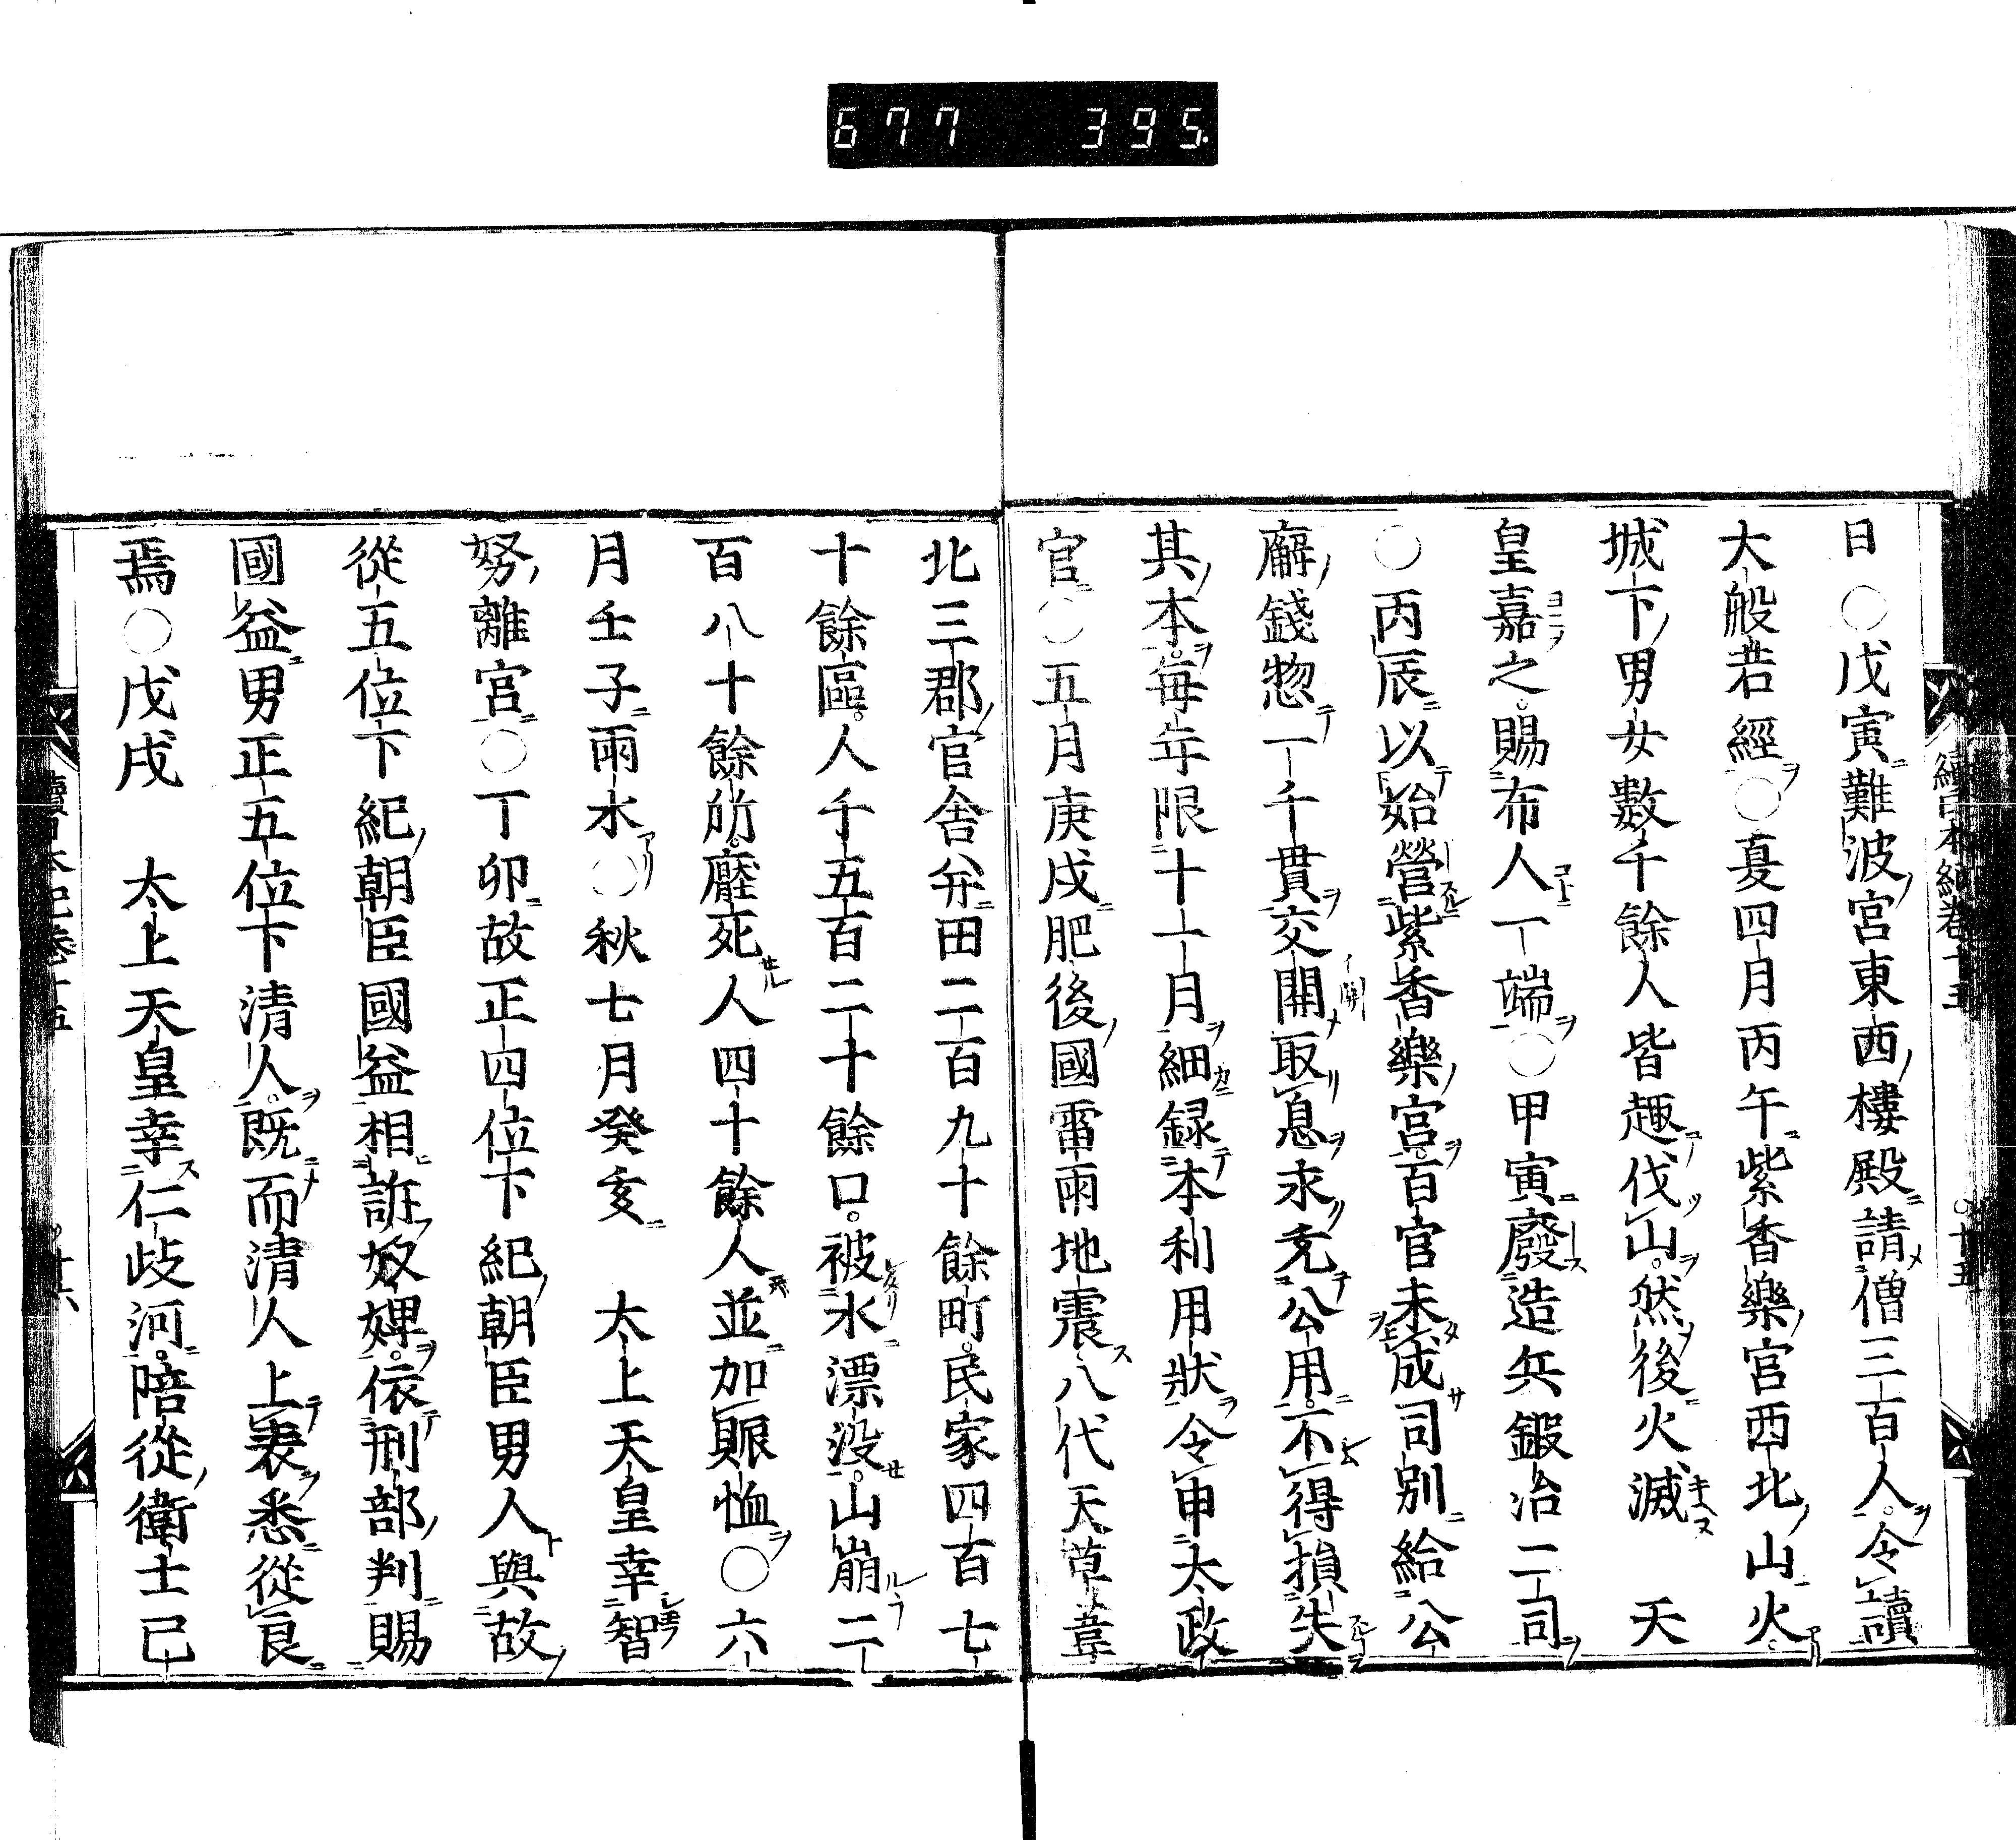 677 395.
日○戊寅難波宮東西樓殿請僧三百人令讀
大般若經○夏四月丙午紫香樂宮西北山火
城下男女數千餘人皆趣伐山然後火滅 天
皇嘉之賜布人一端○甲寅廢造兵鍛冶二司
○丙辰以始營紫香樂宮百官未成司別給公
廨錢惣一千貫交開取息永充公用不得損失
其本每年限十一月細録本利用狀令申太政
官○五月庚戌肥後國雷雨地震八代天草葦
北三郡官舍并田二百九十餘町民家四百七
十餘區人千五百二十餘口被水漂没山崩二
百八十餘所壓死人四十餘人並加賑恤○六
月壬子雨水○秋七月癸亥 太上天皇幸智
努離宮○丁卯故正四位下紀朝臣男人與故
從五位下紀朝臣國益相訴奴婢依刑部判賜
國益男正五位下清人既而清人上表悉從良
焉○戊戌 太上天皇幸仁歧河陪從衛士已